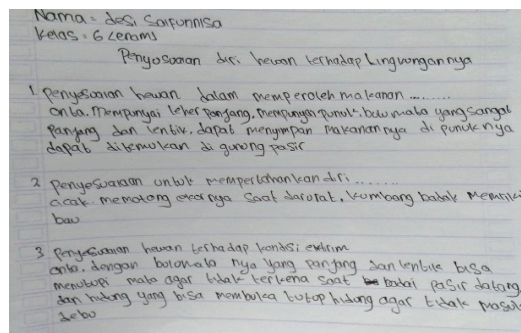 Nama : desi Saifunnisa
Kelas : 6 (enam)
Penyosoaian diri hewan terhadap Lingungannya
1. Penyesoaian hewan dalam memperoleh makanan ........
onta, Mempunyai leher Panjang, mempunyai punuk, bulu mata yang sangat
Panjang dan lentik, dapat menyimpan Makanannya di punuknya
dapat ditemukan di gunung pasir
2 Penyesuaian untuk mempertahankan diri .......
cicak memotong ekornya saat darurat, kumbang badak memiliki
bau
3 Penyesuaian hewan terhadap kondisi extrim
onta, dengan bulumata nya yang panjang dan lentik bisa
menutupi mata agar tidak terkena saat badai pasir datang
dan hidung yang bisa membuka tutup hidung agar tidak masuk
debu